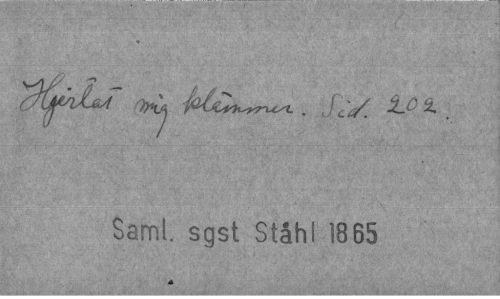 Hjertat mig klämmer. Sid. 202.
Saml. sgst Ståhl 1865